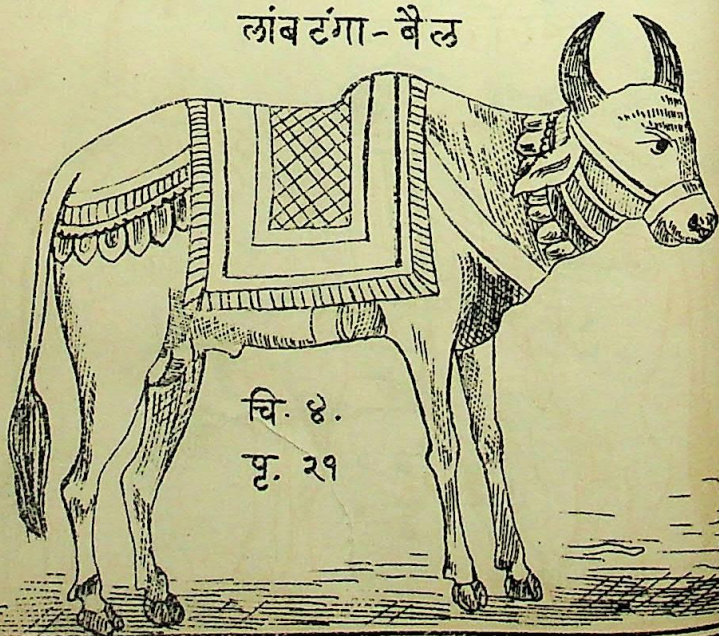 लांबटंगा-बैल
चि. ४.
पृ. २१